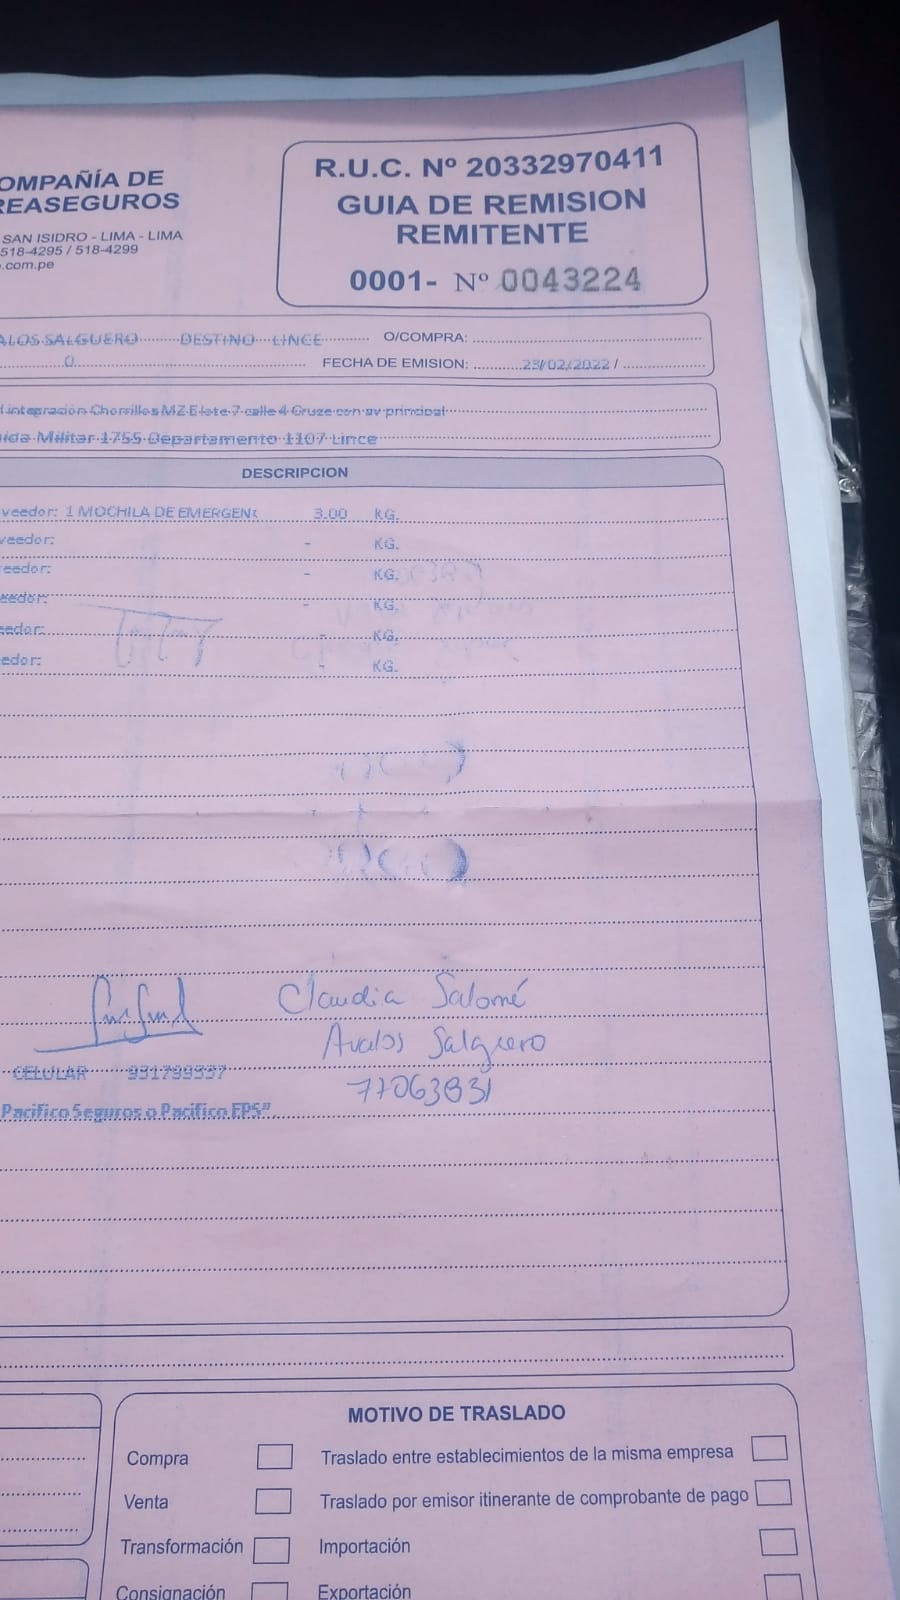 OMPAÑÍA DE
REASEGUROS
SAN ISIDRO - LIMA - LIMA
518-4295 / 518-4299
.com.pe
R.U.C. Nº 20332970411
GUIA DE REMISION
REMITENTE
0001- Nº 0043224
ALOS SALGUERO DESTINO LINCE O/COMPRA:
0 FECHA DE EMISION: 23/02/2022 /
integración Chorrillos MZ E lote 7 calle 4 Cruze con av principal
ida Militar 1755 Departamento 1107 Lince
DESCRIPCION
veedor: 1 MOCHILA DE EMERGEN 3.00 KG.
veedor: - KG.
eedor: - KG.
eedor: - KG.
eedor: - KG.
edor: - KG.
Claudia Salomé
Avalos Salguero
CELULAR 931799337
77063831
Pacifico Seguros o Pacifico EPS"
MOTIVO DE TRASLADO
Compra Traslado entre establecimientos de la misma empresa
Venta Traslado por emisor itinerante de comprobante de pago
Transformación Importación
Consignación Exportación